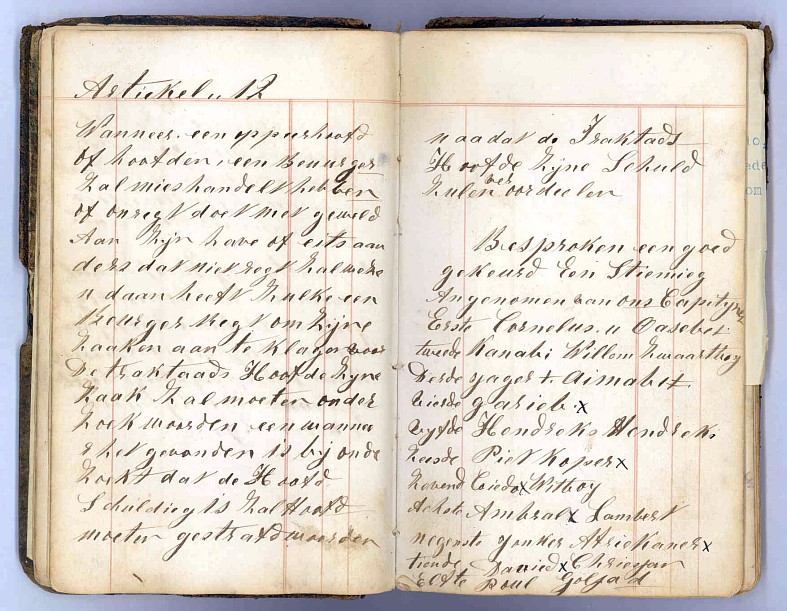 Artiekel 12
Wanneer een opperhoofd
Of hoofden een Beurger
Zal mieshandelt hebben
of onregt doet met geweld
Aan Zyn have of eits aan
ders dat niet regt Zal weze
n daan heeft Zulke een
Beurger Regt om Zyne
Zaaken aan te klagen voor
De traktaads Hoofde Zyne
Zaak Zal moeten onder
Zoek woorden een wanne
r het gevonden is by onde
Zoekt dat de Hoofd
Schuldieg is Zal Hoofd
moeten gestraft woorden
naadat de Traktaads
Hoofde Zyne Schuld
Zulen ver oordeelen
Besproken een goed
gekeurd Een Stiemieg
Angenomen van ons Capityns
Erste Cornelus u Oasebet
tweede Kanabi Willem Zwaartboy
Derde yager + Aimab +
vierde garieb x
vyfde Hendreks Hendreks
Zesde Piet Koper x
Zevend Cieda x Witboy
Achste Ambral x Lambert
negenste yonker Afriekaner x
tiende David x Chriesjan
Elfte Poul Goliad